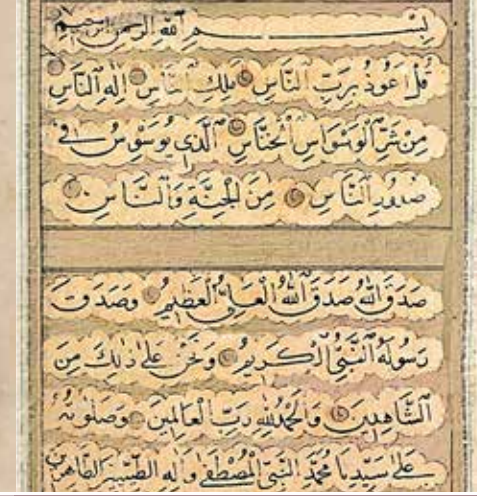 بِسْمِ اللَّهِ الرَّحْمَنِ الرَّحِيمِ
قُلْ أَعُوذُ بِرَبِّ النَّاسِ مَلِكِ النَّاسِ إِلَهِ النَّاسِ
مِنْ شَرِّ الْوَسْوَاسِ الْخَنَّاسِ الَّذِي يُوَسْوِسُ فِي
صُدُورِ النَّاسِ مِنَ الْجِنَّةِ وَالنَّاسِ
صَدَقَ اللَّهُ صَدَقَ اللَّهُ الْعَلِيُّ الْعَظِيمُ وَصَدَقَ
رَسُولُهُ النَّبِيُّ الْكَرِيمُ وَنَحْنُ عَلَى ذَلِكَ مِنَ
الشَّاهِدِينَ وَالْحَمْدُ لِلَّهِ رَبِّ الْعَالَمِينَ وَصَلَوَاتُهُ
عَلَى سَيِّدِنَا مُحَمَّدٍ النَّبِيِّ الْمُصْطَفَى وَآلِهِ الطَّيِّبِينَ الطَّاهِرِينَ